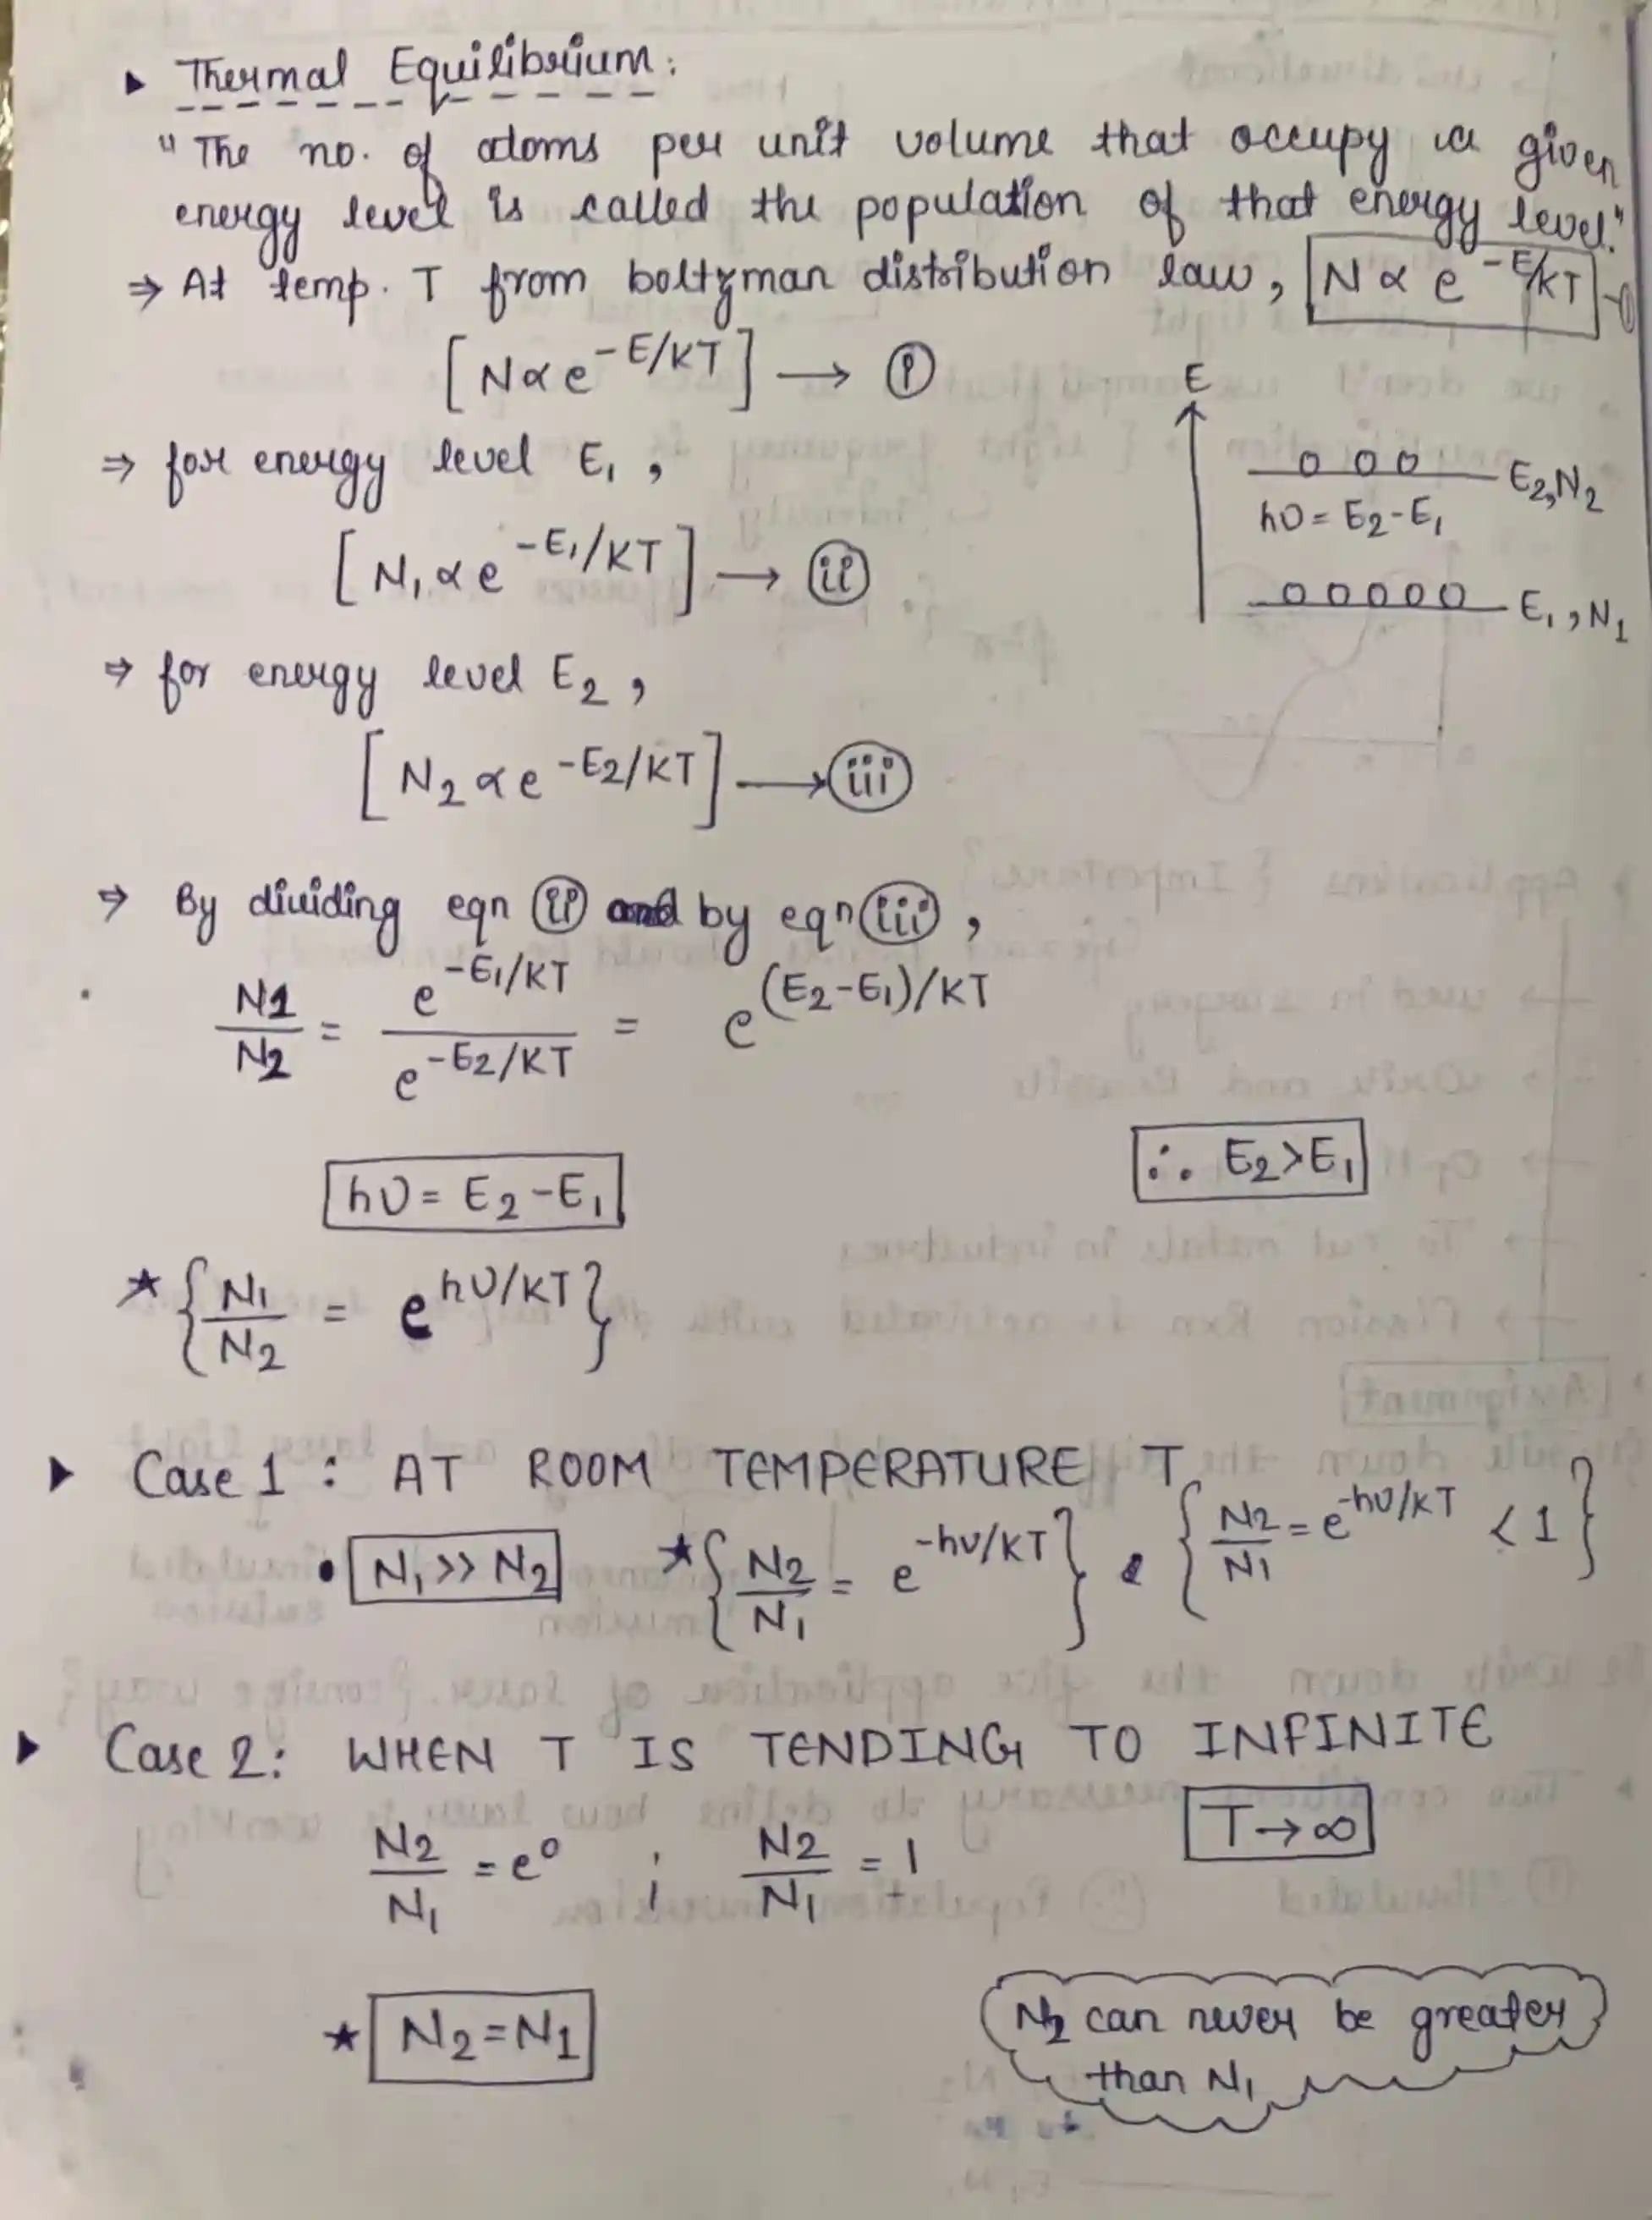 ▸ Thermal Equilibrium:
"The no. of atoms per unit volume that occupy a given
energy level is called the population of that energy level."
⇒ At temp. T from boltzman distribution law, N ∝ e^-E/KT -①
[N∝e^-E/KT] → ⓘ
E
⇒ for energy level E₁,
E₂,N₂
hυ = E₂-E₁
[N₁∝e^-E₁/KT] → ⓘⓘ
E₁,N₁
⇒ for energy level E₂,
[N₂∝e^-E₂/KT] → (iii)
⇒ By dividing eqn (ii) by eqn (iii),
N1/N2 = e^-E₁/KT / e^-E₂/KT = e^(E₂-E₁)/KT
∴ E₂>E₁
hυ = E₂-E₁
★ {N₁/N₂ = e^hυ/KT}
▸ Case 1: AT ROOM TEMPERATURE T
• N₁>>N₂ ★{N₂/N₁ = e^-hυ/KT} {N₂/N₁ = e^-hυ/KT < 1}
▸ Case 2: WHEN T IS TENDING TO INFINITE
T→∞
N₂/N₁ = e⁰ ; N₂/N₁ = 1
★ N₂=N1
N₂ can never be greater
than N₁